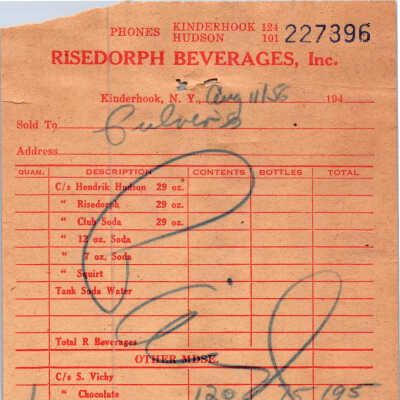 PHONES KINDERHOOK 124
HUDSON 101 227396
RISEDORPH BEVERAGES, Inc.
Kinderhook, N. Y., Aug 11/58 194
Sold To Pulvers
Address
QUAN. DESCRIPTION CONTENTS BOTTLES TOTAL
C/s Hendrik Hudson 29 oz.
" Risedorph 29 oz.
" Club Soda 29 oz.
" 12 oz. Soda
" 7 oz. Soda
" Squirt
Tank Soda Water
Total R Beverages
OTHER MDSE.
C/s S. Vichy
1 " Chocolate 120 75 195